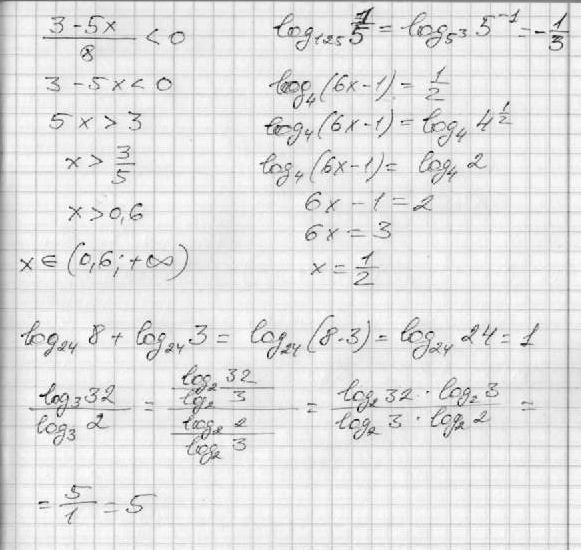 (3-5x)/8 < 0
3-5x<0
5x>3
x>3/5
x>0,6
x∈(0,6;+∞)
log₁₂₅ 1/5 = log₅³ 5⁻¹ = -1/3
log₄(6x-1) = 1/2
log₄(6x-1) = log₄ 4^(1/2)
log₄(6x-1) = log₄ 2
6x-1=2
6x=3
x=1/2
log₂₄ 8 + log₂₄ 3 = log₂₄ (8·3) = log₂₄ 24 = 1
(log₃ 32)/(log₃ 2) = ((log₂ 32)/(log₂ 3))/((log₂ 2)/(log₂ 3)) = (log₂ 32 · log₂ 3)/(log₂ 3 · log₂ 2) =
= 5/1 = 5